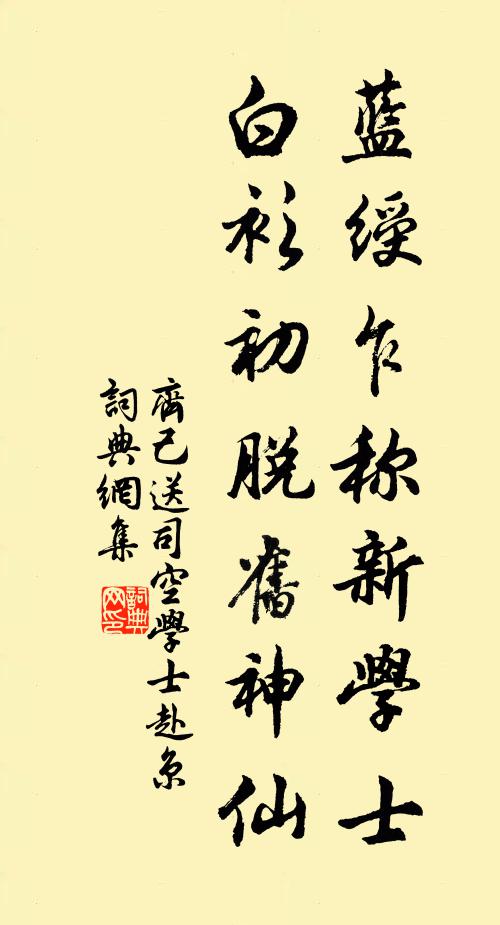 藍綬乍称新學士
白衫初脫舊神仙
齊己送司空學士赴京
詞典網集
詞典网印